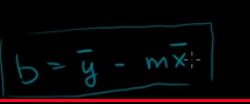 b = y̅ - mx̅